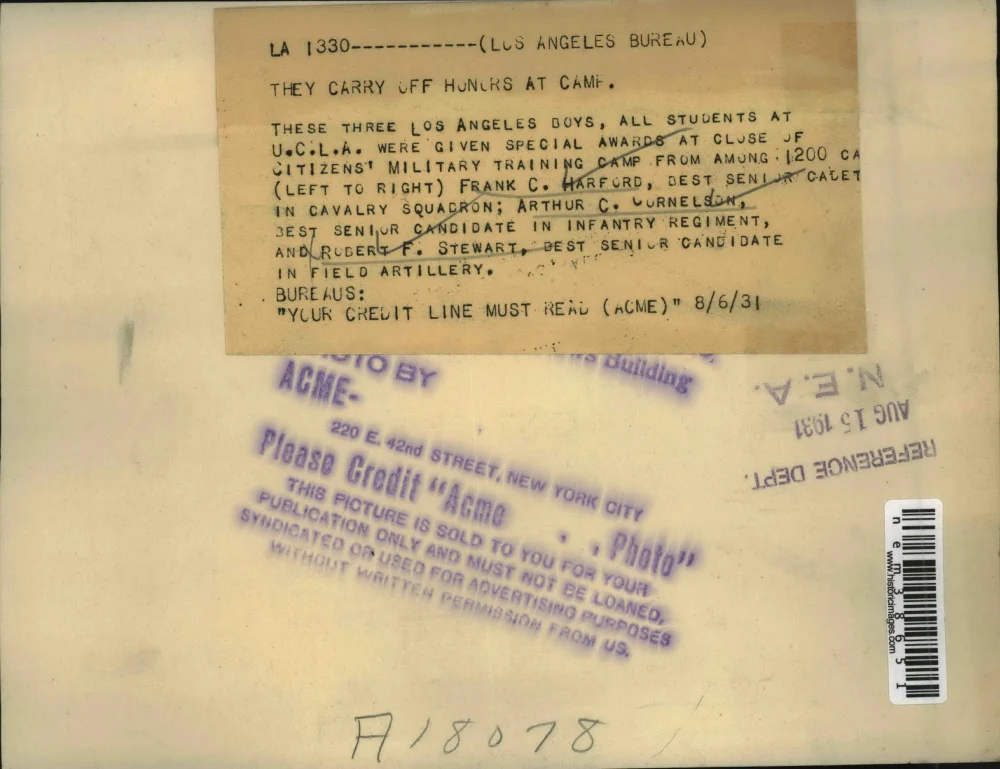 LA 1330-----------(LOS ANGELES BUREAU)
THEY CARRY OFF HONORS AT CAMP.
THESE THREE LOS ANGELES BOYS, ALL STUDENTS AT
U.C.L.A. WERE GIVEN SPECIAL AWARDS AT CLOSE OF
CITIZENS' MILITARY TRAINING CAMP FROM AMONG 1200 CA
(LEFT TO RIGHT) FRANK C. HARFORD, BEST SENIOR CADET
IN CAVALRY SQUADRON; ARTHUR C. CORNELSON,
BEST SENIOR CANDIDATE IN INFANTRY REGIMENT,
AND ROBERT F. STEWART, BEST SENIOR CANDIDATE
IN FIELD ARTILLERY.
BUREAUS:
"YOUR CREDIT LINE MUST READ (ACME)" 8/6/31
OTO BY
ACME-
Building
220 E. 42nd STREET, NEW YORK CITY
Please Credit "Acme . . Photo"
THIS PICTURE IS SOLD TO YOU FOR YOUR
PUBLICATION ONLY AND MUST NOT BE LOANED,
SYNDICATED OR USED FOR ADVERTISING PURPOSES
WITHOUT WRITTEN PERMISSION FROM US.
REFERENCE DEPT.
AUG 15 1931
N.E.A.
nem38651
www.historicimages.com
A18078